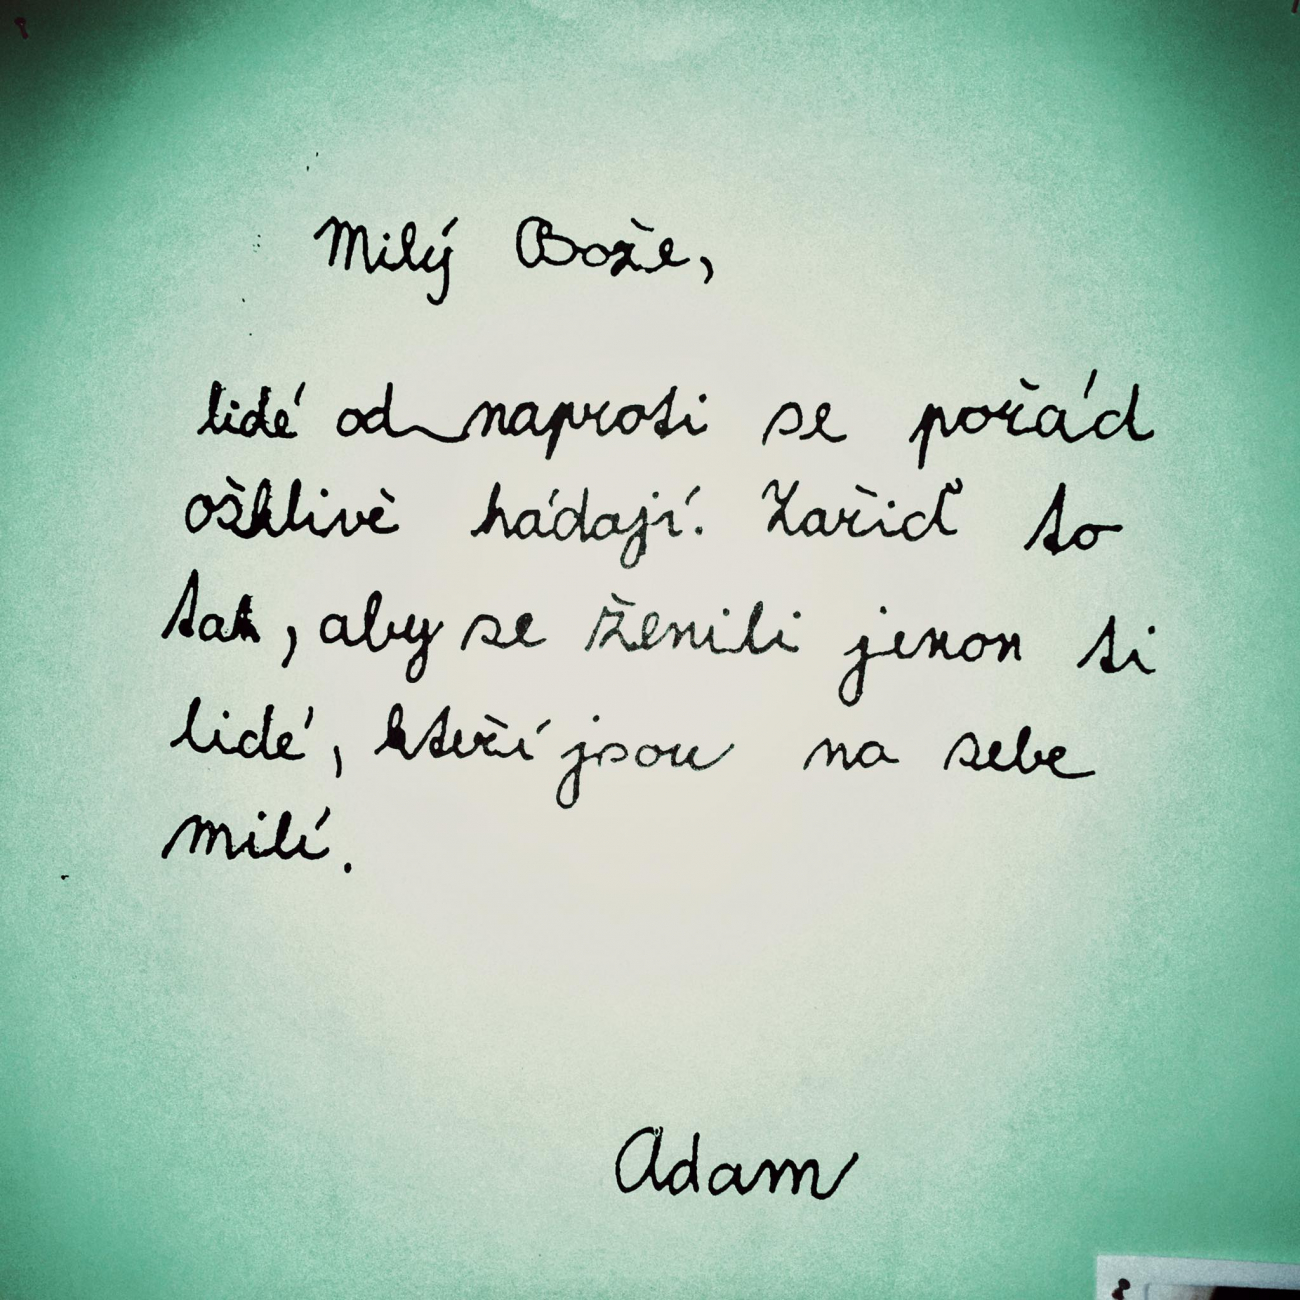 Milý Bože,
lidé od naproti se pořád
ošklivě hádají. Zařiď to
tak, aby se ženili jenom ti
lidé, kteří jsou na sebe
milí.
Adam